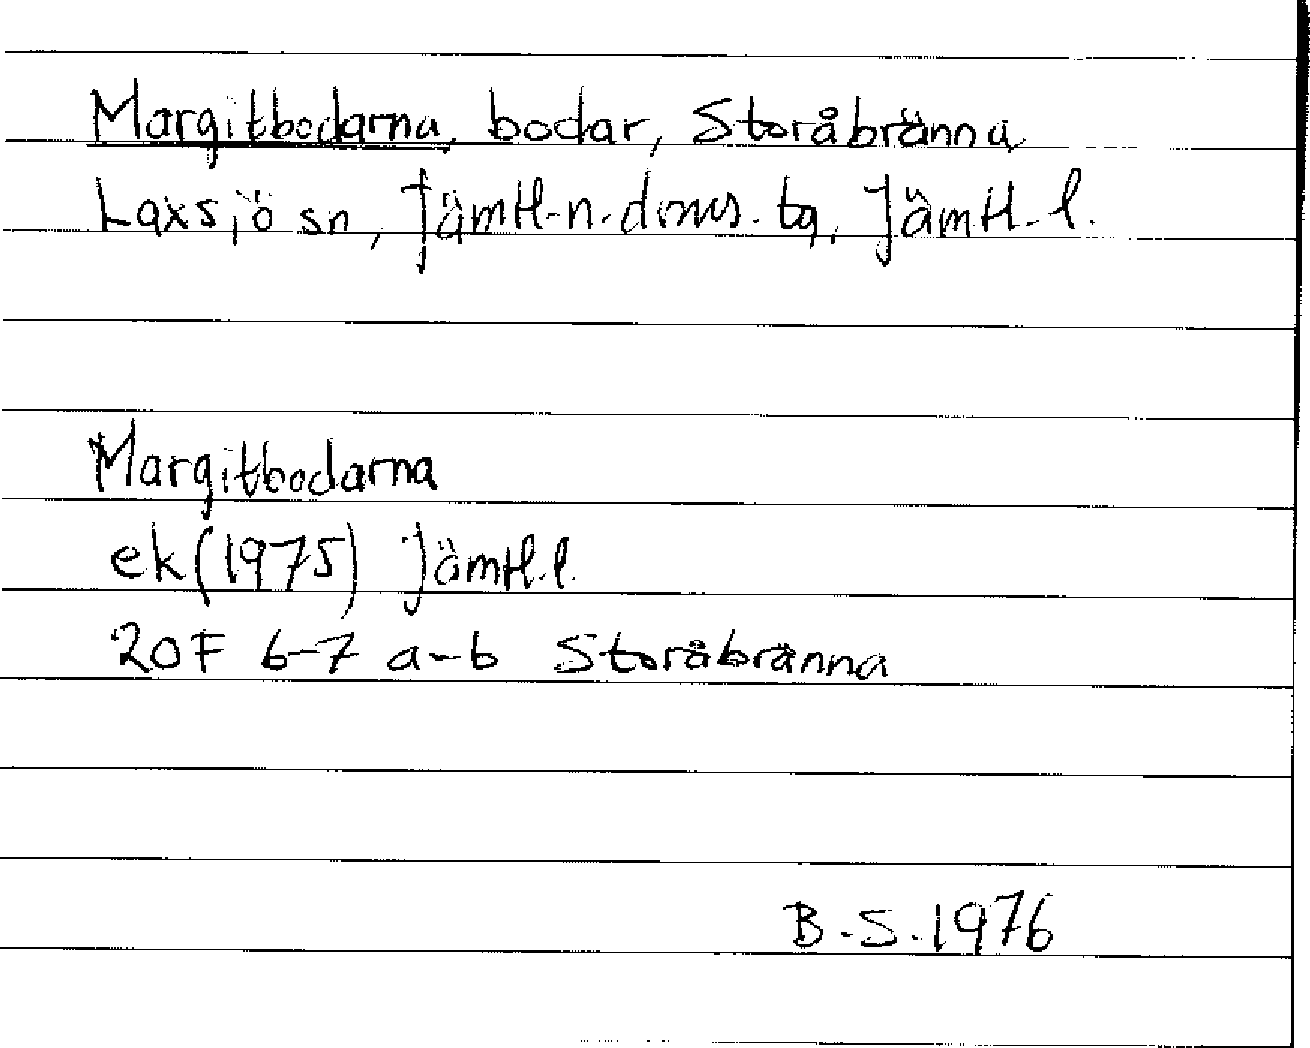 Margitbodarna, bodar, Storåbränna
Laxsjö sn, Jämtl. n. doms. tg, Jämtl. l.
Margitbodarna
ek (1975) Jämtl. l.
20F 6-7 a-b Storåbränna
B.S. 1976